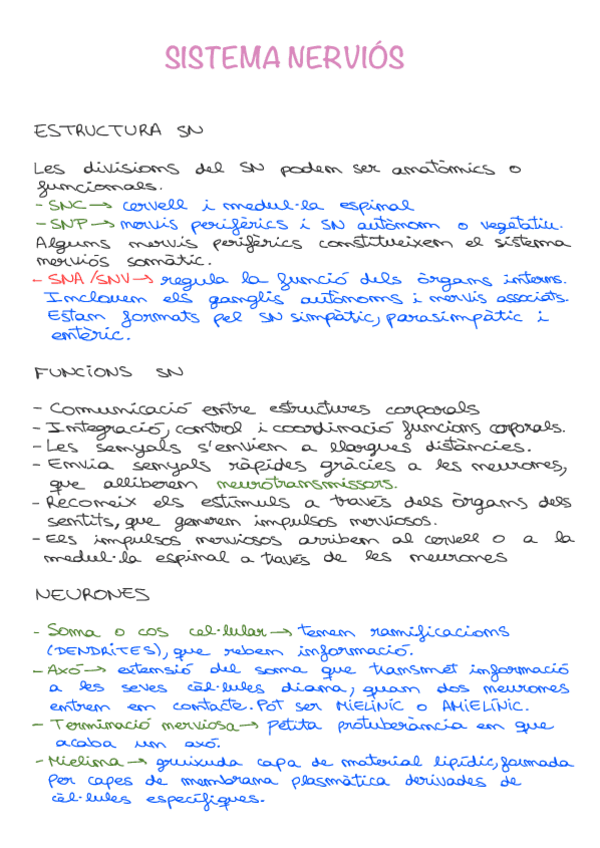 SISTEMA NERVIÓS
ESTRUCTURA SN
Les divisions del SN poden ser anatòmics o
funcionals.
- SNC → cervell i medul·la espinal
- SNP → nervis perifèrics i SN autònom o vegetatiu.
Alguns nervis perifèrics constitueixen el sistema
nerviós somàtic.
- SNA/SNV → regula la funció dels òrgans interns.
Inclouen els ganglis autònoms i nervis associats.
Estan formats pel SN simpàtic, parasimpàtic i
entèric.
FUNCIONS SN
- Comunicació entre estructures corporals
- Integració, control i coordinació funcions corporals.
- Les senyals s'envien a llargues distàncies.
- Envia senyals ràpides gràcies a les neurones,
que alliberen neurotransmissors.
- Reconeix els estímuls a través dels òrgans dels
sentits, que generen impulsos nerviosos.
- Els impulsos nerviosos arriben al cervell o a la
medul·la espinal a través de les neurones
NEURONES
- Soma o cos cel·lular → tenen ramificacions
(DENDRITES), que reben informació.
- Axó → extensió del soma que transmet informació
a les seves cèl·lules diana, quan dos neurones
entren en contacte. Pot ser MIELÍNIC o AMIELÍNIC.
- Terminació nerviosa → petita protuberància en que
acaba un axó.
- Mielina → gruixuda capa de material lipídic, formada
per capes de membrana plasmàtica derivades de
cèl·lules específiques.